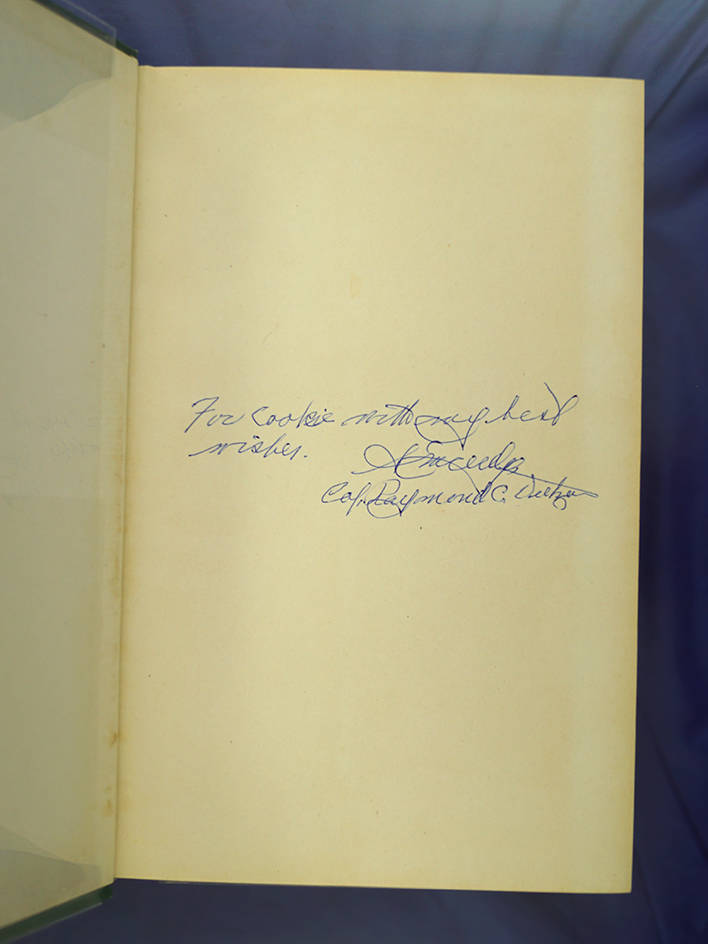 For Cookie with my best
wishes.
Sincerely,
Raymond C.